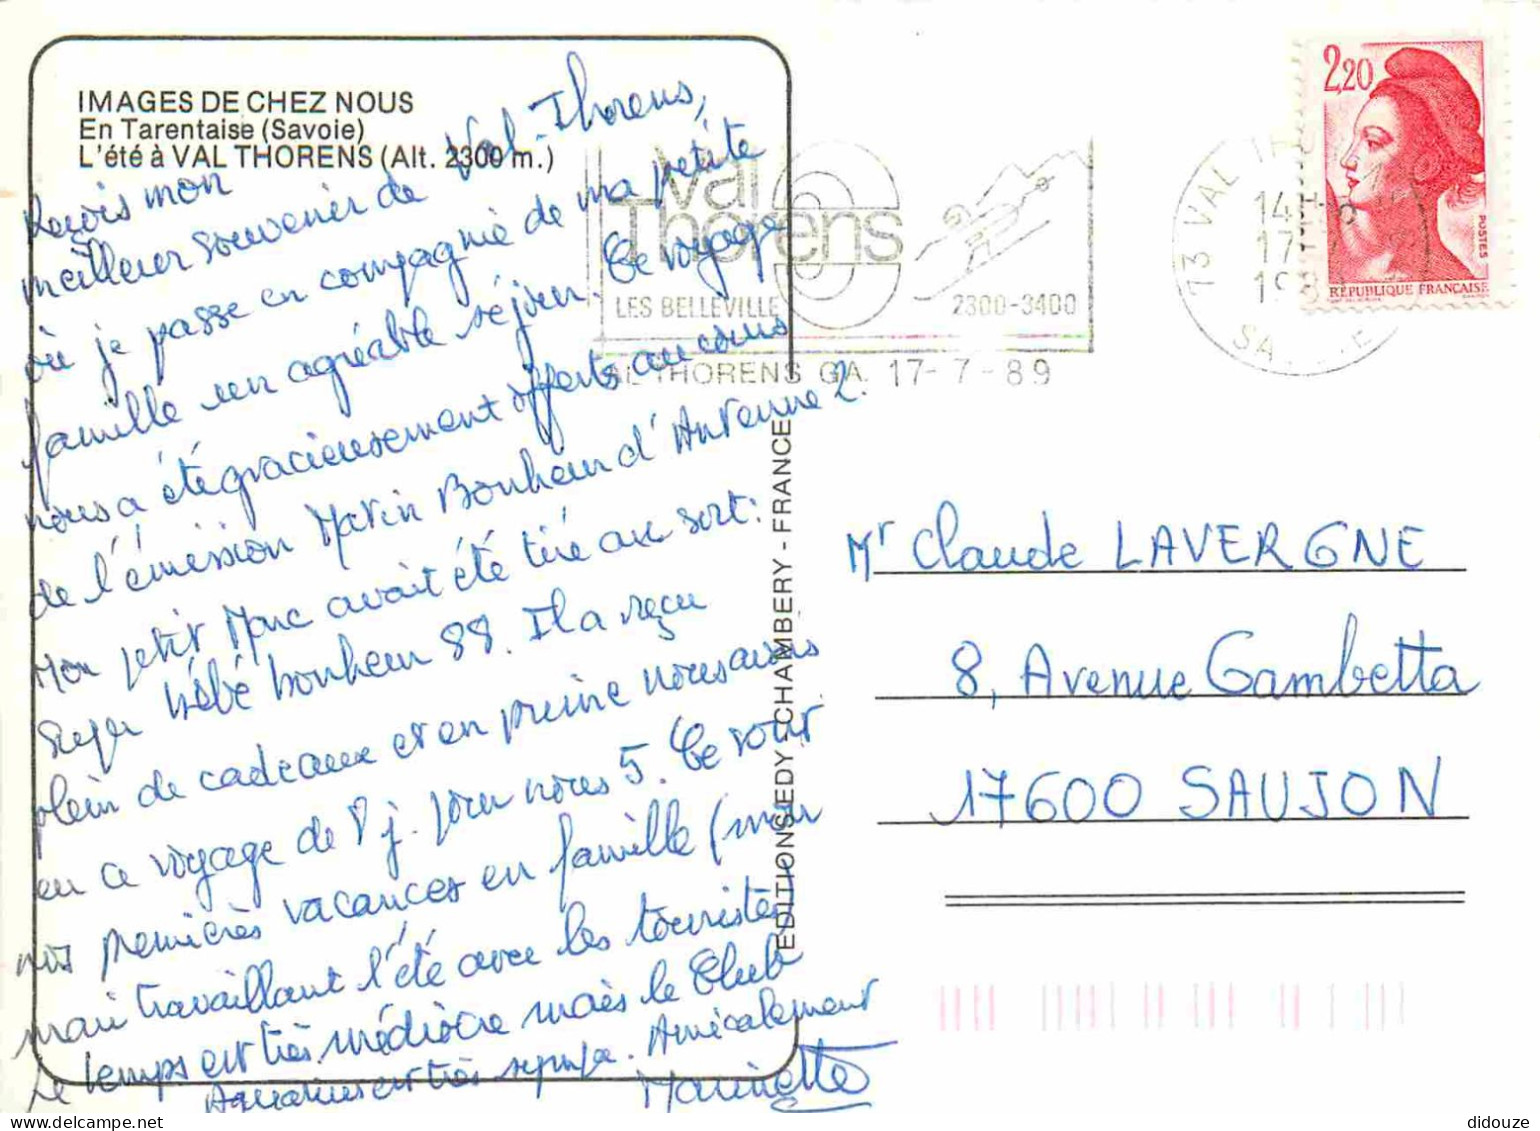 IMAGES DE CHEZ NOUS
En Tarentaise (Savoie)
L'été à VAL THORENS (Alt. 2300 m.)
Reçois mon
meilleur souvenir de Val-Thorens,
où je passe en compagnie de ma petite
famille un agréable séjour. Ce voyage
nous a été gracieusement offerts au cours
de l'émission Matin Bonheur d'Antenne 2.
Mon petit Marc avait été tiré au sort:
super bébé bonheur 88. Il a reçu
plein de cadeaux et en prime nous avons
eu ce voyage de 8 j. pour nous 5. Ce sont
nos premières vacances en famille (mon
mari travaillant l'été avec les touristes
Le temps est très médiocre mais le Club
Aquarius est très sympa. Amicalement
Marinette
EDITIONS EDY - CHAMBERY - FRANCE
Val
Thorens
LES BELLEVILLE
2300-3400
VAL THORENS GA. 17-7-89
73 VAL
14
17
19
SA
2,20
POSTES
RÉPUBLIQUE FRANÇAISE
Mr Claude LAVERGNE
8, Avenue Gambetta
17600 SAUJON
www.delcampe.net
didouze